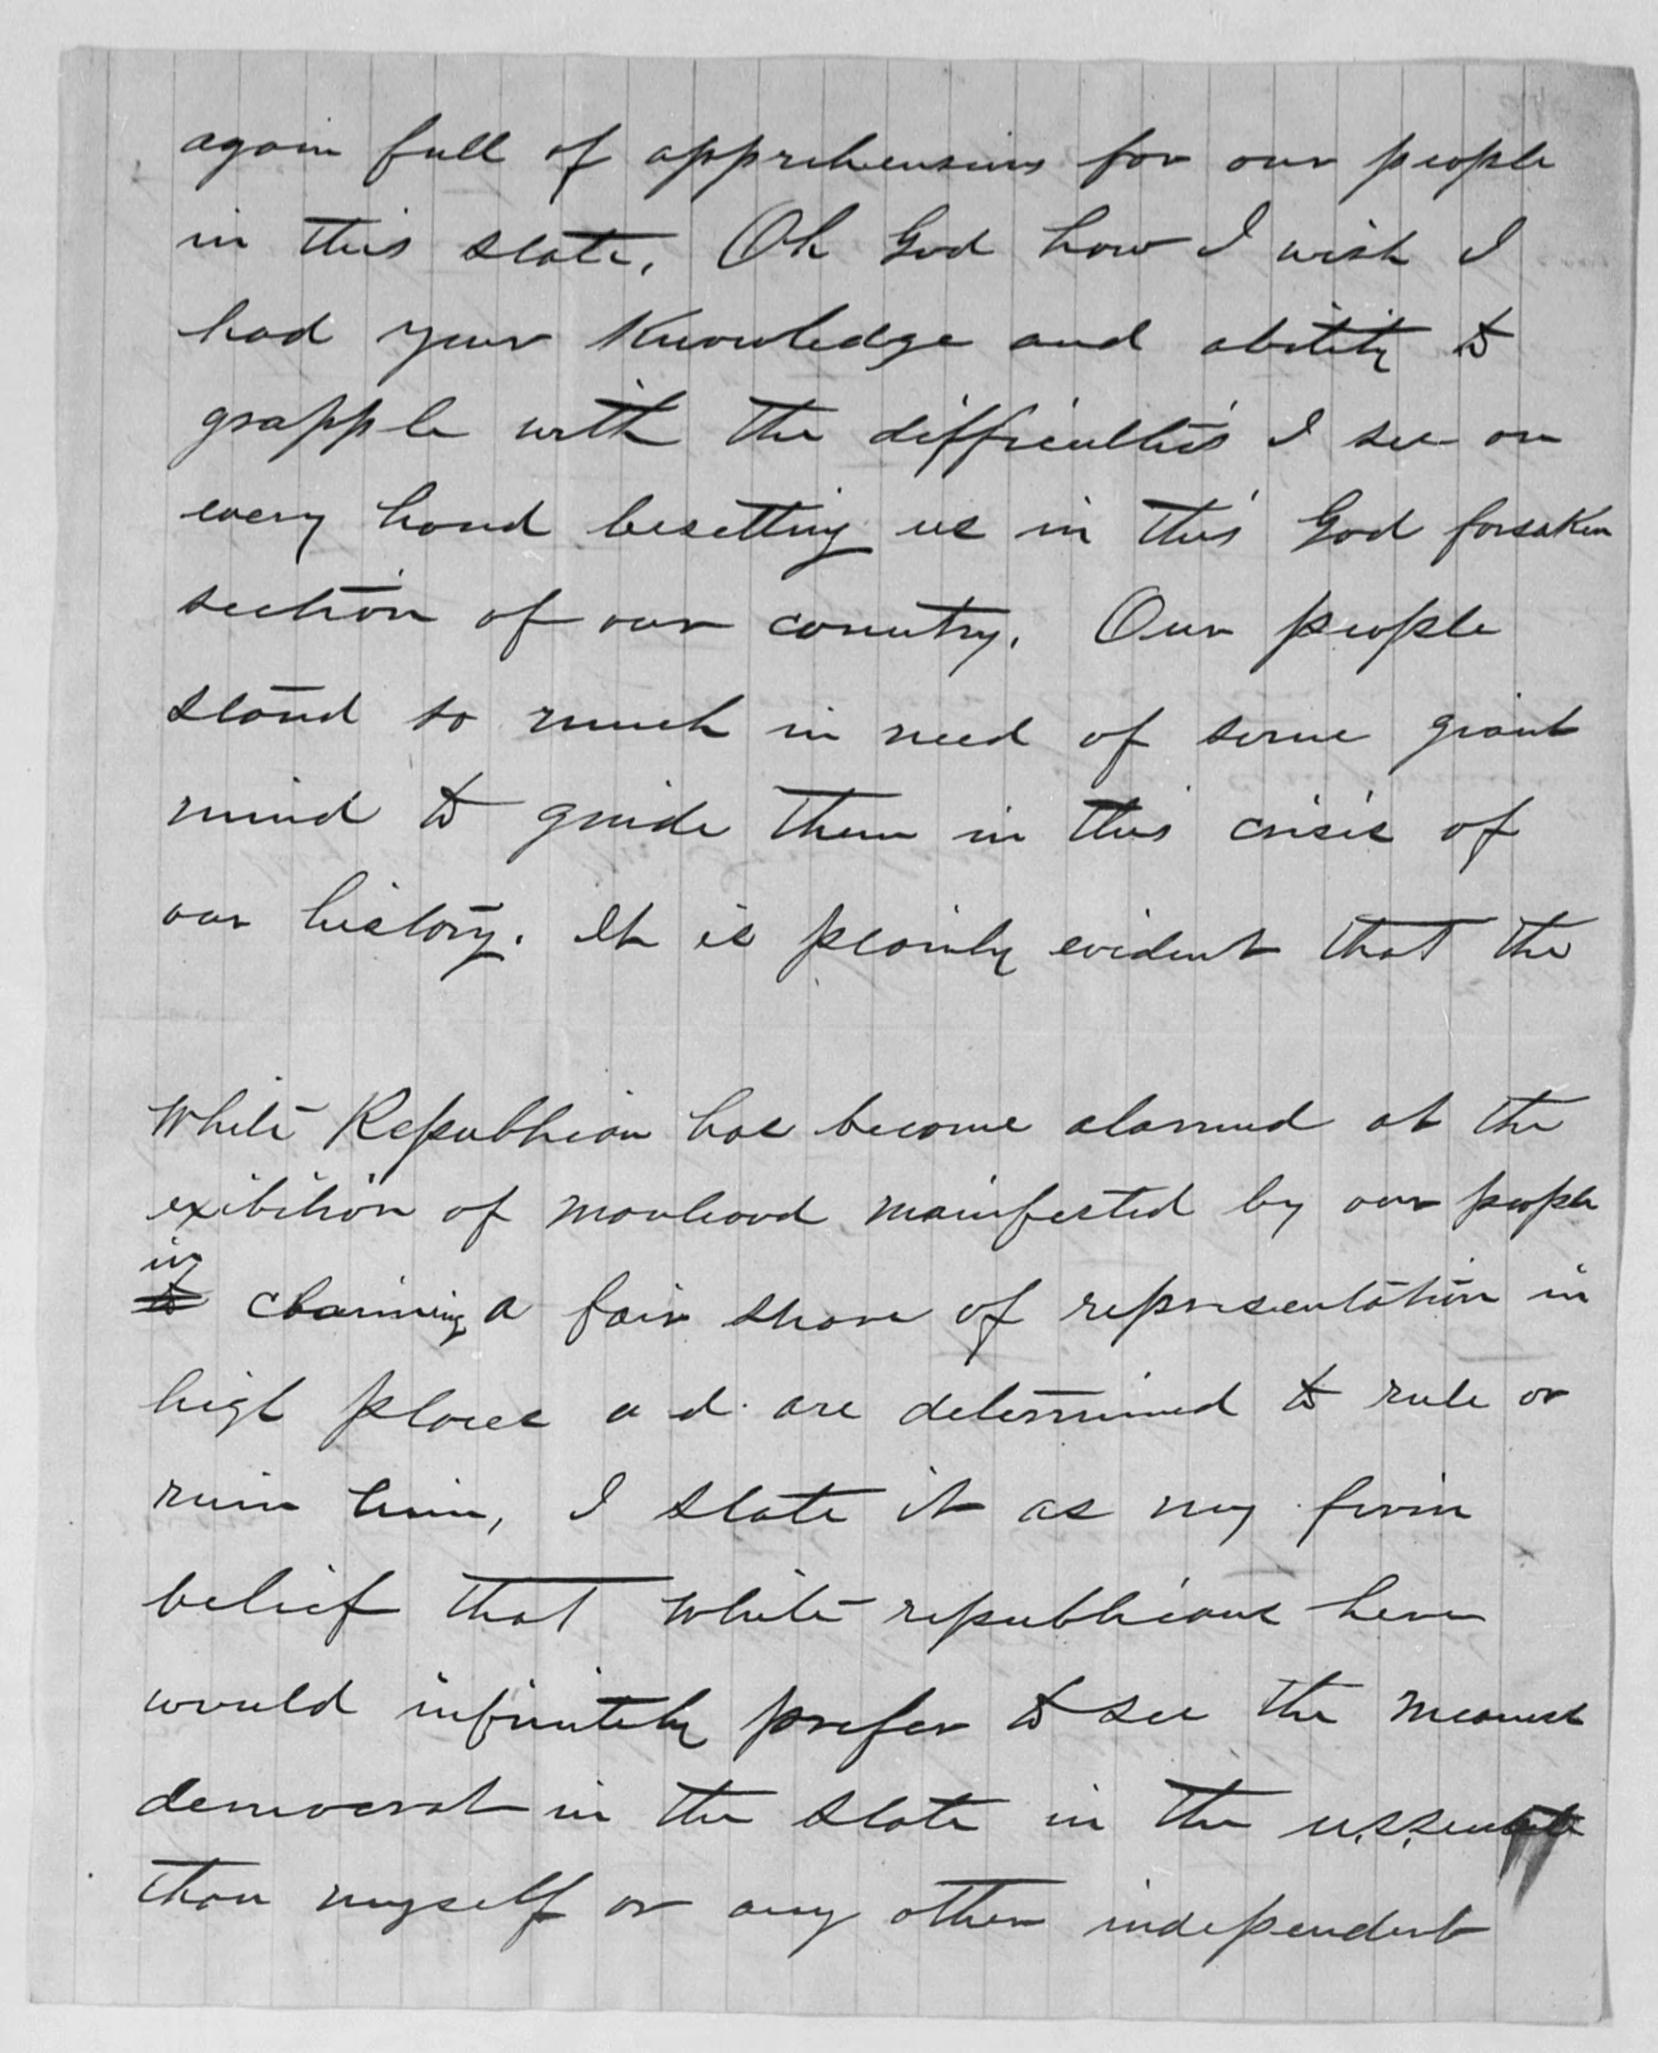 again full of apprehensions for our people
in this state. Oh God how I wish I
had your Knowledge and ability to
grapple with the difficulties I see on
every hand besetting us in this God forsaken
section of our country. Our people
stand so much in need of some giant
mind to guide them in this crisis of
our history. It is plainly evident that the
White Republican has become alarmed at the
exibition of manhood manifested by our people
in
to claiming a fair share of representation in
higl places a d are determined to rule or
ruin him, I state it as my firm
belief that white republicans here
would infinitely prefer to see the meanest
democrat in the state in the U.S. Senate
than myself or any other independent